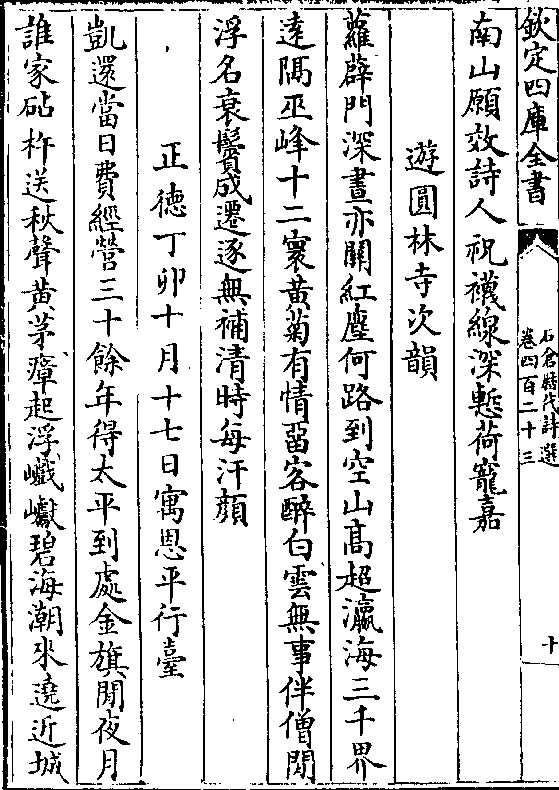 欽定四庫全書
石倉歷代詩選
卷四百二十三
十
南山願效詩人祝襪線深慙荷寵嘉
遊圓林寺次韻
蘿薜門深晝亦關紅塵何路到空山髙超瀛海三千界
逺隔巫峰十二寰黄菊有情留客醉白雲無事伴僧閒
浮名衰鬢成遷逐無補清時每汗顔
正德丁卯十月十七日寓恩平行臺
凱還當日費經營三十餘年得太平到處金旗閒夜月
誰家砧杵送秋聲黄茅瘴起浮巘巘碧海潮來遶近城